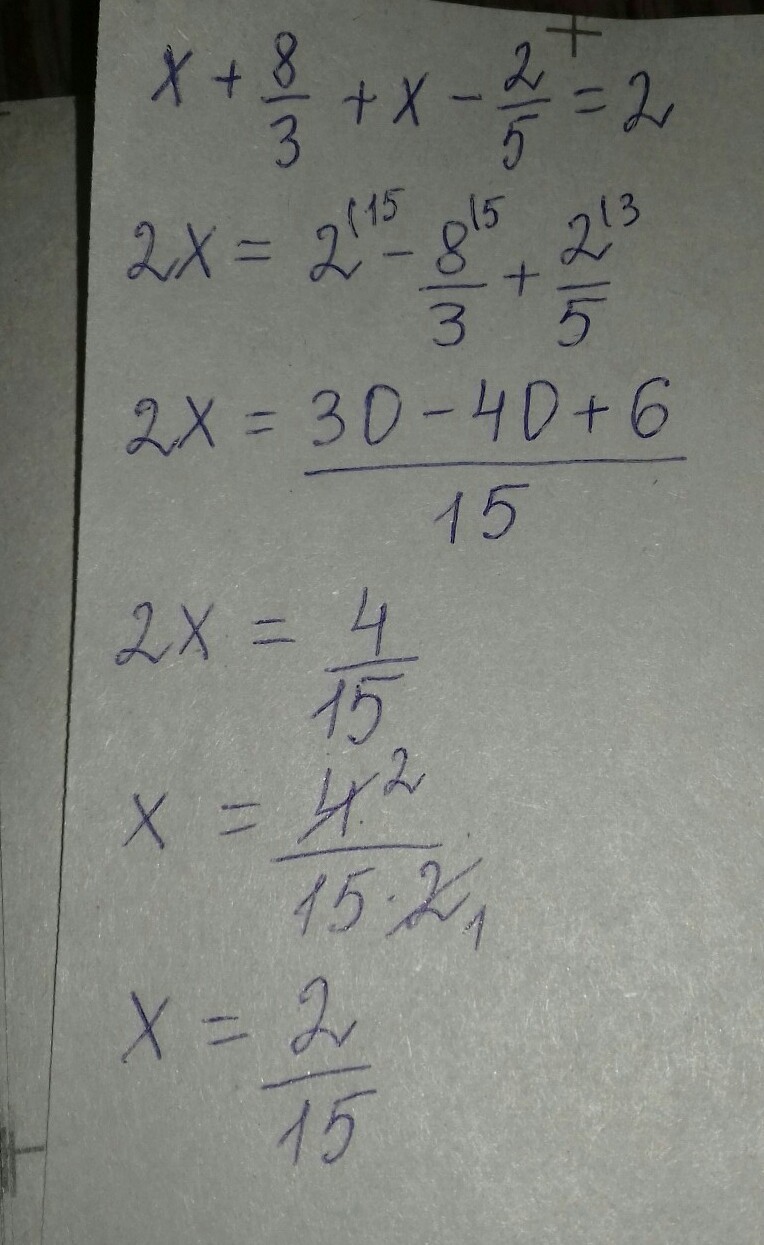 x + 8/3 + x - 2/5 = 2
2x = 2^(15 - 8^(5/3 + 2^(3/5
2x = 30 - 40 + 6/15
2x = 4/15
x = 4^2/15·2_1
x = 2/15